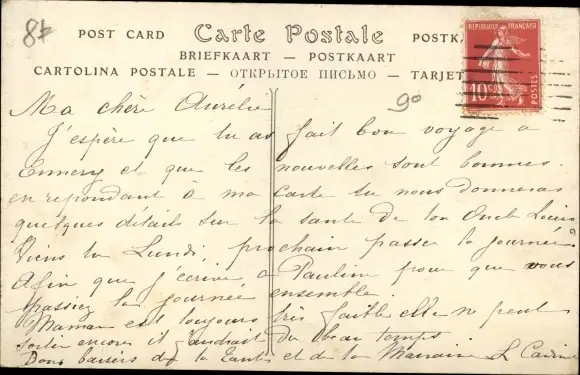 87
POST CARD Carte Postale POSTK
BRIEFKAART — POSTKAART
CARTOLINA POSTALE — ОТКРЫТОЕ ПИСЬМО — TARJET
REPUBLIQUE FRANÇAISE
10c
POSTES
90
Ma chère Aurélie
J'espère que tu as fait bon voyage a
Ennery et que les nouvelles sont bonnes.
en repondant à ma carte tu nous donneras
quelques détails sur la santé de ton Oncle Louis
Viens tu Lundi, prochain passer la journée
Afin que j'écrive a Pauline pour que vous
passiez la journée ensemble.
Maman est toujours très faible elle ne peut
sortir encore il faudrait du beau temps.
Bons baisers de ta Tante et de ta Marraine L